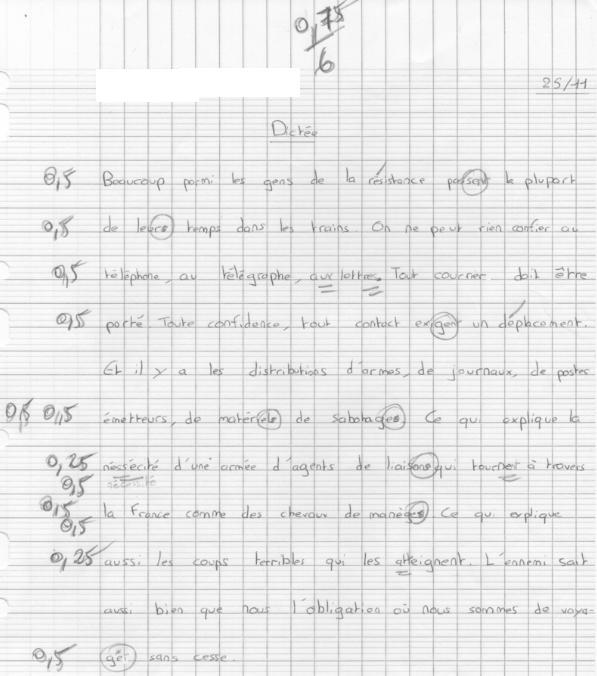 0,75
6
25/11
Dictée
0,5 Beaucoup parmi les gens de la résistance passait le plupart
0,5 de leurs temps dans les trains. On ne peut rien confier au
0,5 téléphone, au télégraphe, aux lettres. Tout courrier doit être
0,5 porté. Toute confidence, tout contact exigent un déplacement.
Et il y a les distributions d'armes, de journaux, de postes
0,5 0,5 émetteurs, de matériels de sabotages. Ce qui explique la
0,25 néssécité d'une armée d'agents de liaisons qui tourner à travers
0,5 nécessité
0,5 la France comme des chevaux de manèges. Ce qui explique
0,5
0,25 aussi les coups terribles qui les atteignent. L'ennemi sait
aussi bien que nous l'obligation où nous sommes de voya-
0,5 ger sans cesse.